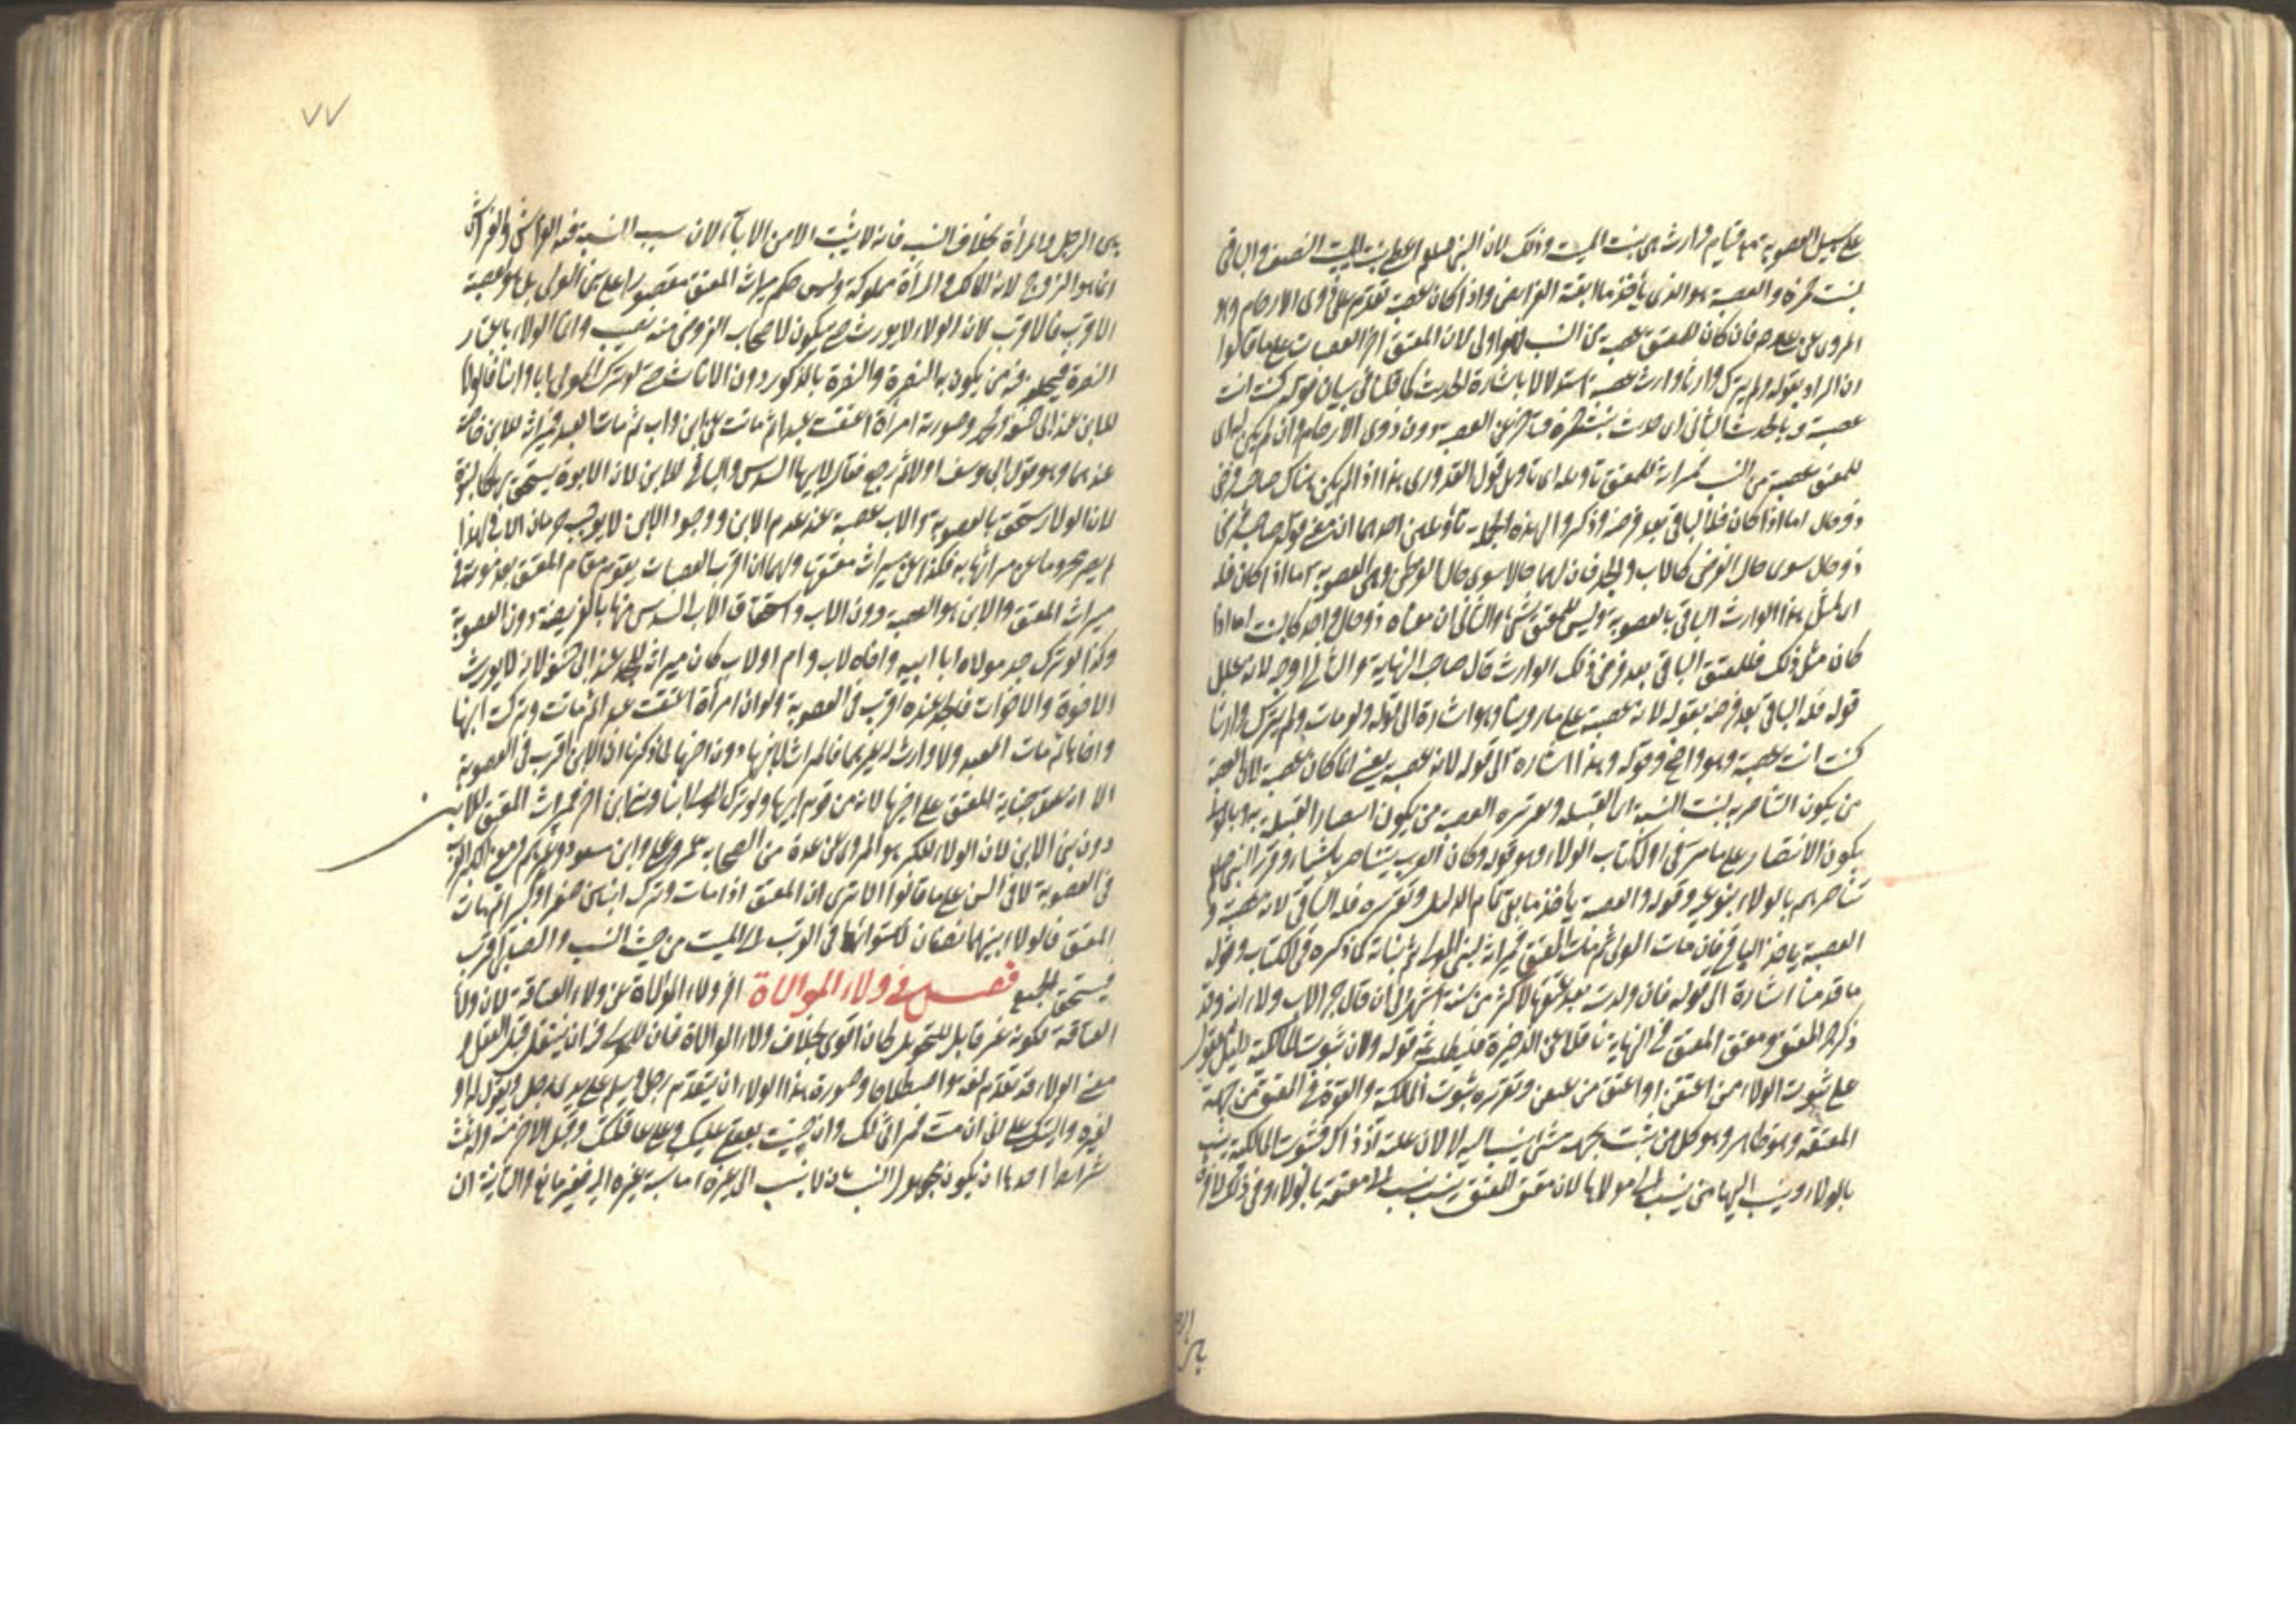 على سبيل العصوبة مع قيام وارث هي بنت الميت وذلك لان النبي صلعم اعطى بنت الميت النصف والباقى
لبنت حمزة والعصبة هو الذى يأخذ ما ابقته الفرايض واذا كان عصبة تقدم على ذوى الارحام وهو
المروى عن على رضه فان كان للمعتق عصبة من النسب فهو اولى لان المعتق آخر العصبات على ما قالوا
ان المراد بقوله ولم يترك وارثا وارث عصبة استدلالا باشارة الحديث كما قلنا فى بيان قوله كنت انت
عصبة وبالحديث الثانى اى حديث بنت حمزة فتأخر عن العصبة دون ذوى الارحام وان لم يكن له اى
للمعتق عصبة من النسب فميراثه للمعتق تأويله اى تأويل قول القدورى هذا اذا لم يكن هناك صاحب فرض
ذو حال اما اذا كان فله الباقى بعد فرضه وذكروا لهذه الجملة تأويلين احدهما ان معنى قوله صاحب فرض
ذو حال سوى حال الفرض كالاب والجد فان لهما حالا سوى حال الفرض وهى العصوبة اما اذا كان فله
اى لمثل هذا الوارث الباقى بالعصوبة وليس للمعتق شئ والثانى ان معناه ذو حال واحد كالبنت اما اذا
كان مثل ذلك فللمعتق الباقى بعد فرض ذلك الوارث قال صاحب النهاية والثانى اوجه لانه علل
قوله فله الباقى بعد فرضه بقوله لانه عصبة على ما روينا وهو اشارة الى قوله ولو مات ولم يترك وارثا
كنت انت عصبة وهو واضح وقوله وهذا اشارة الى قوله لانه عصبة يعنى انما كان عصبة لان العصبة
من يكون التناصر به لبيت النسبة اى القبيلة وتقريره العصبة من يكون انتصار القبيلة به وبالموالى
يكون الانتصار على ما مر فى اول كتاب الولاء وهو قوله وكان العرب يتناصر باشياء وقرر النبى صلعم
تناصرهم بالولاء بنوعيه وقوله والعصبة يأخذ ما بقى تمام الدليل وتقريره فله الباقى لانه عصبة و
العصبة ياخذ الباقى فان مات المولى ثم مات المعتق فميراثه لبنى المولى دون بناته كما ذكره فى الكتاب وقوله
ما قدمنا اشارة الى قوله فان ولدت بعد عتقها لاكثر من ستة اشهر الى ان قال جر الاب ولاء ابنه وقد
ذكر جر المعتق ومعتق المعتق فى النهاية ناقلا عن الذخيرة فليطلب ثمة قوله ولان ثبوت المالكية دليل معقول
على ثبوت الولاء ممن اعتقن او اعتق من عتقن وتقريره ثبوت المالكية والقوة فى المعتق من جهة
المعتقة وهو ظاهر وهو كل من يثبت بجهة شئ ينسب اليه لان علته اذ ذاك فثبوت المالكية ينسب
بالولاء وينسب اليها من ينسب الى مولاها لان معتق المعتق ينسب الى معتقه بالولاء وفى ذلك لا فرق
بين الرجل والمرأة بخلاف النسب فانه لا يثبت الا من الاباء لان سبب النسبة فيه الفراش والفراش
انما هو الزوج لانه المالك والمرأة مملوكة وليس حكم ميراث المعتق مقصورا على بنى المولى بل هو لعصبته
الاقرب فالاقرب لان الولاء لا يورث حتى يكون لاصحاب الفروض منه نصيب وانما الولاء باعتبار
النصرة فيجعل فيه من يكون به النصرة والنصرة بالذكور دون الاناث حتى لو ترك المولى ابا وابنا فالولاء
للابن عند ابى حنيفة ومحمد وصورته امرأة اعتقت عبدا ثم ماتت عن ابن واب ثم مات العبد فميراثه للابن خاصة
عندهما وهو قول ابى يوسف اولا ثم رجع فقال لابيها السدس والباقى للابن لان الابوة يستحق بها كالبنوة
لان الولاء يستحق بالعصوبة والاب عصبة عند عدم الابن ووجود الابن لا يوجب حرمان الاب فلهذا لم
يصر محروما عن ميراثها به فكذا عن ميراث معتقها ولهما ان اقرب العصبات يقوم مقام المعتق بعد موته فى
ميراث المعتق والابن هو العصبة دون الاب واستحقاق الاب السدس منها بالفريضة دون العصوبة
وكذا لو ترك جد مولاه ابا ابيه واخاه لاب وام او لاب كان ميراثه للجد عند ابى حنيفة لانه لا يورث
الاخوة والاخوات فالجد عنده اقرب فى العصوبة ولو ان امرأة اعتقت عبدا ثم ماتت وتركت ابنها
واخاها ثم مات العبد ولا وارث له غيرهما فالميراث لابنها دون اخيها لما ذكرنا ان الابن اقرب فى العصوبة
الا ان عقل جناية المعتق على اخيها لانه من قوم ابيها ولو ترك المولى ابنا وبنى ابن آخر فميراث المعتق للابن
دون بنى الابن لان الولاء للكبر هو المروى عن عدة من الصحابة عمر وعلى وابن مسعود وغيرهم ومعناه القرب
فى العصوبة لا فى السن على ما قالوا الا ترى ان المعتق اذا مات وترك ابنين صغيرا وكبيرا ثم مات
المعتق فالولاء بينهما نصفان لاستوائهما فى القرب الى الميت من حيث النسب والصلبى اقرب
فيستحق الجميع فصل فى ولاء الموالاة اخر ولاء الموالاة عن ولاء العتاقة لان ولاء
العتاقة لكونه غير قابل للتحويل كان اقوى بخلاف ولاء الموالاة فان للمولى فيه ان ينتقل قبل العقل و
معنى الولاء قد تقدم لغة واصطلاحا وصورة هذا الولاء ان يتقدم رجل ويسلم على يدى رجل ويقول له او
لغيره واليتك على انى ان مت فميراثى لك وان جنيت فعقلى عليك وعلى عاقلتك وقبل الاخر منه وله ثلث
شرائط احدها ان يكون مجهول النسب بان لا ينسب الى غيره اما نسبة غيره اليه فغير مانع والثانية ان